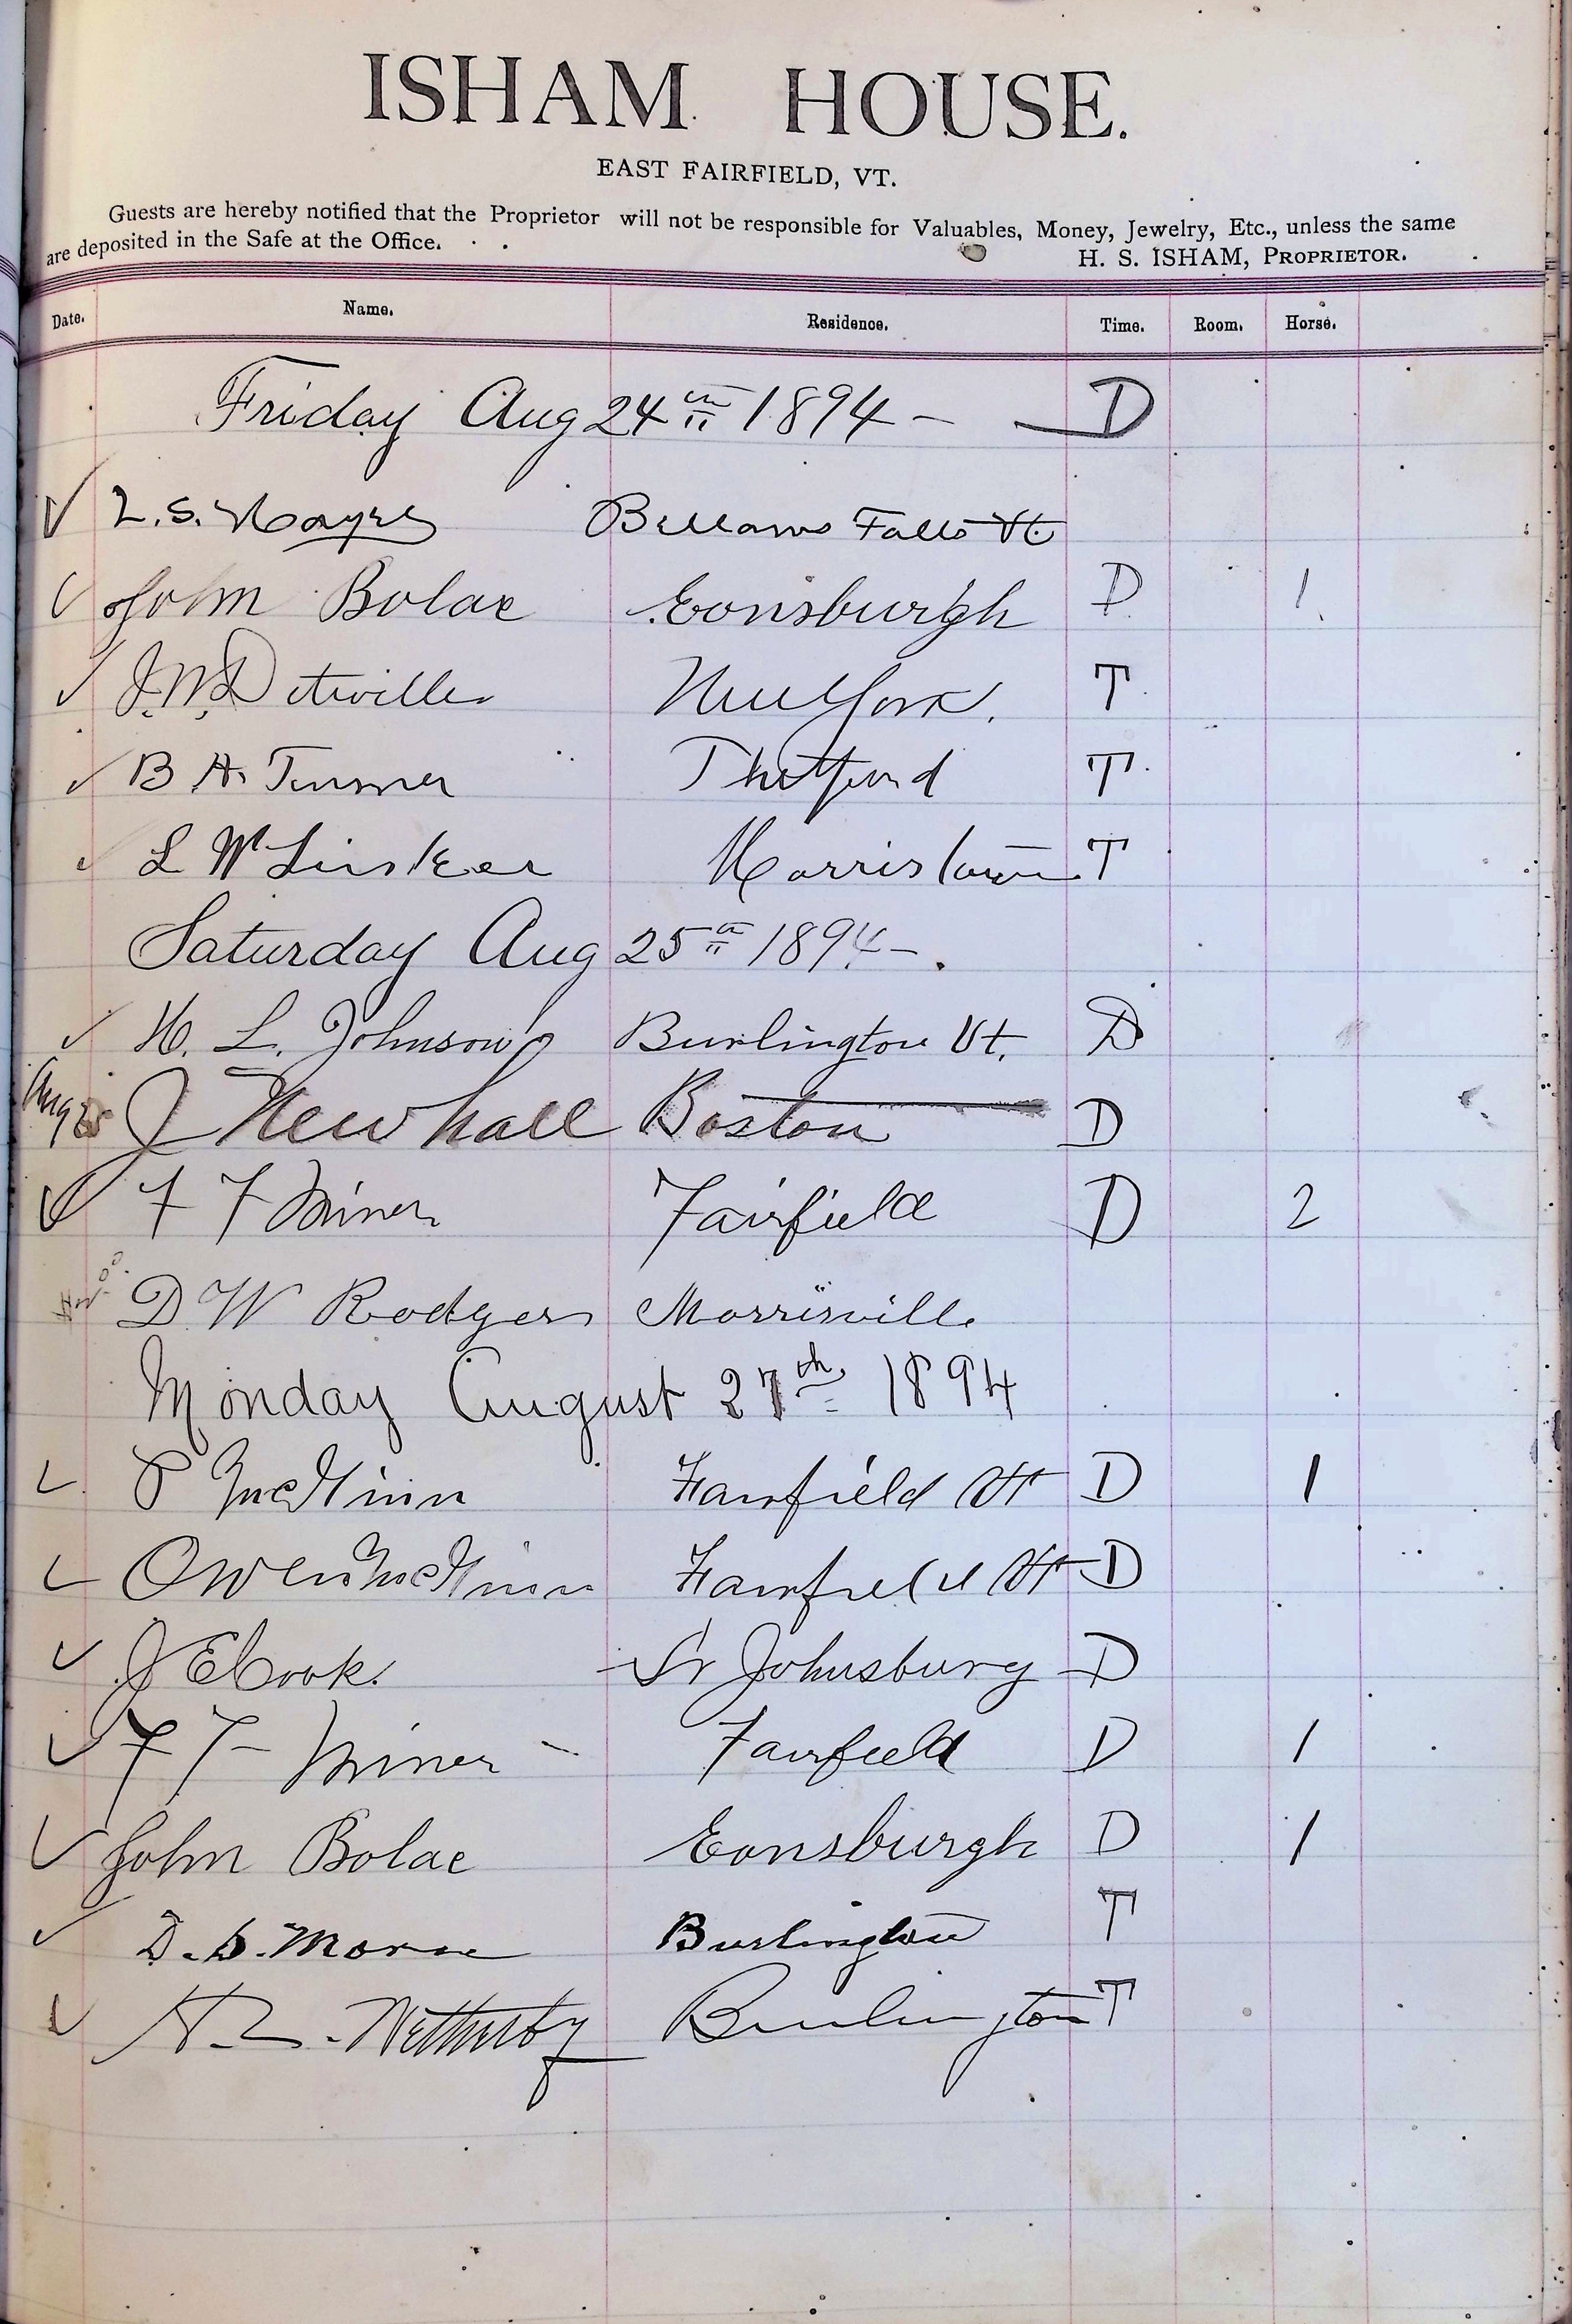 ISHAM HOUSE.
EAST FAIRFIELD, VT.
Guests are hereby notified that the Proprietor will not be responsible for Valuables, Money, Jewelry, Etc., unless the same
are deposited in the Safe at the Office.
H. S. ISHAM, PROPRIETOR.
Date. Name. Residence. Time. Room. Horse.
Friday Aug 24th 1894 — D
L. S. Hayes Bellows Falls Vt.
John Bolac Eonsburgh D 1
J. W. New York. T
B. H. Turner Thetford T
L W Linsker Morristown T
Saturday Aug 25th 1894 —
H. L. Johnson Burlington Vt. D
Aug 25 J Newhall Boston D
F F Miner Fairfield D 2
D W Rodgers Morrisville
Monday August 27th 1894
P McGinn Fairfield Vt D 1
Owen McGinn Fairfield Vt D
J E Cook. St Johnsbury D
F F Miner Fairfield D 1
John Bolac Eonsburgh D 1
D. S. Morse Burlington T
Wetherby Burlington T